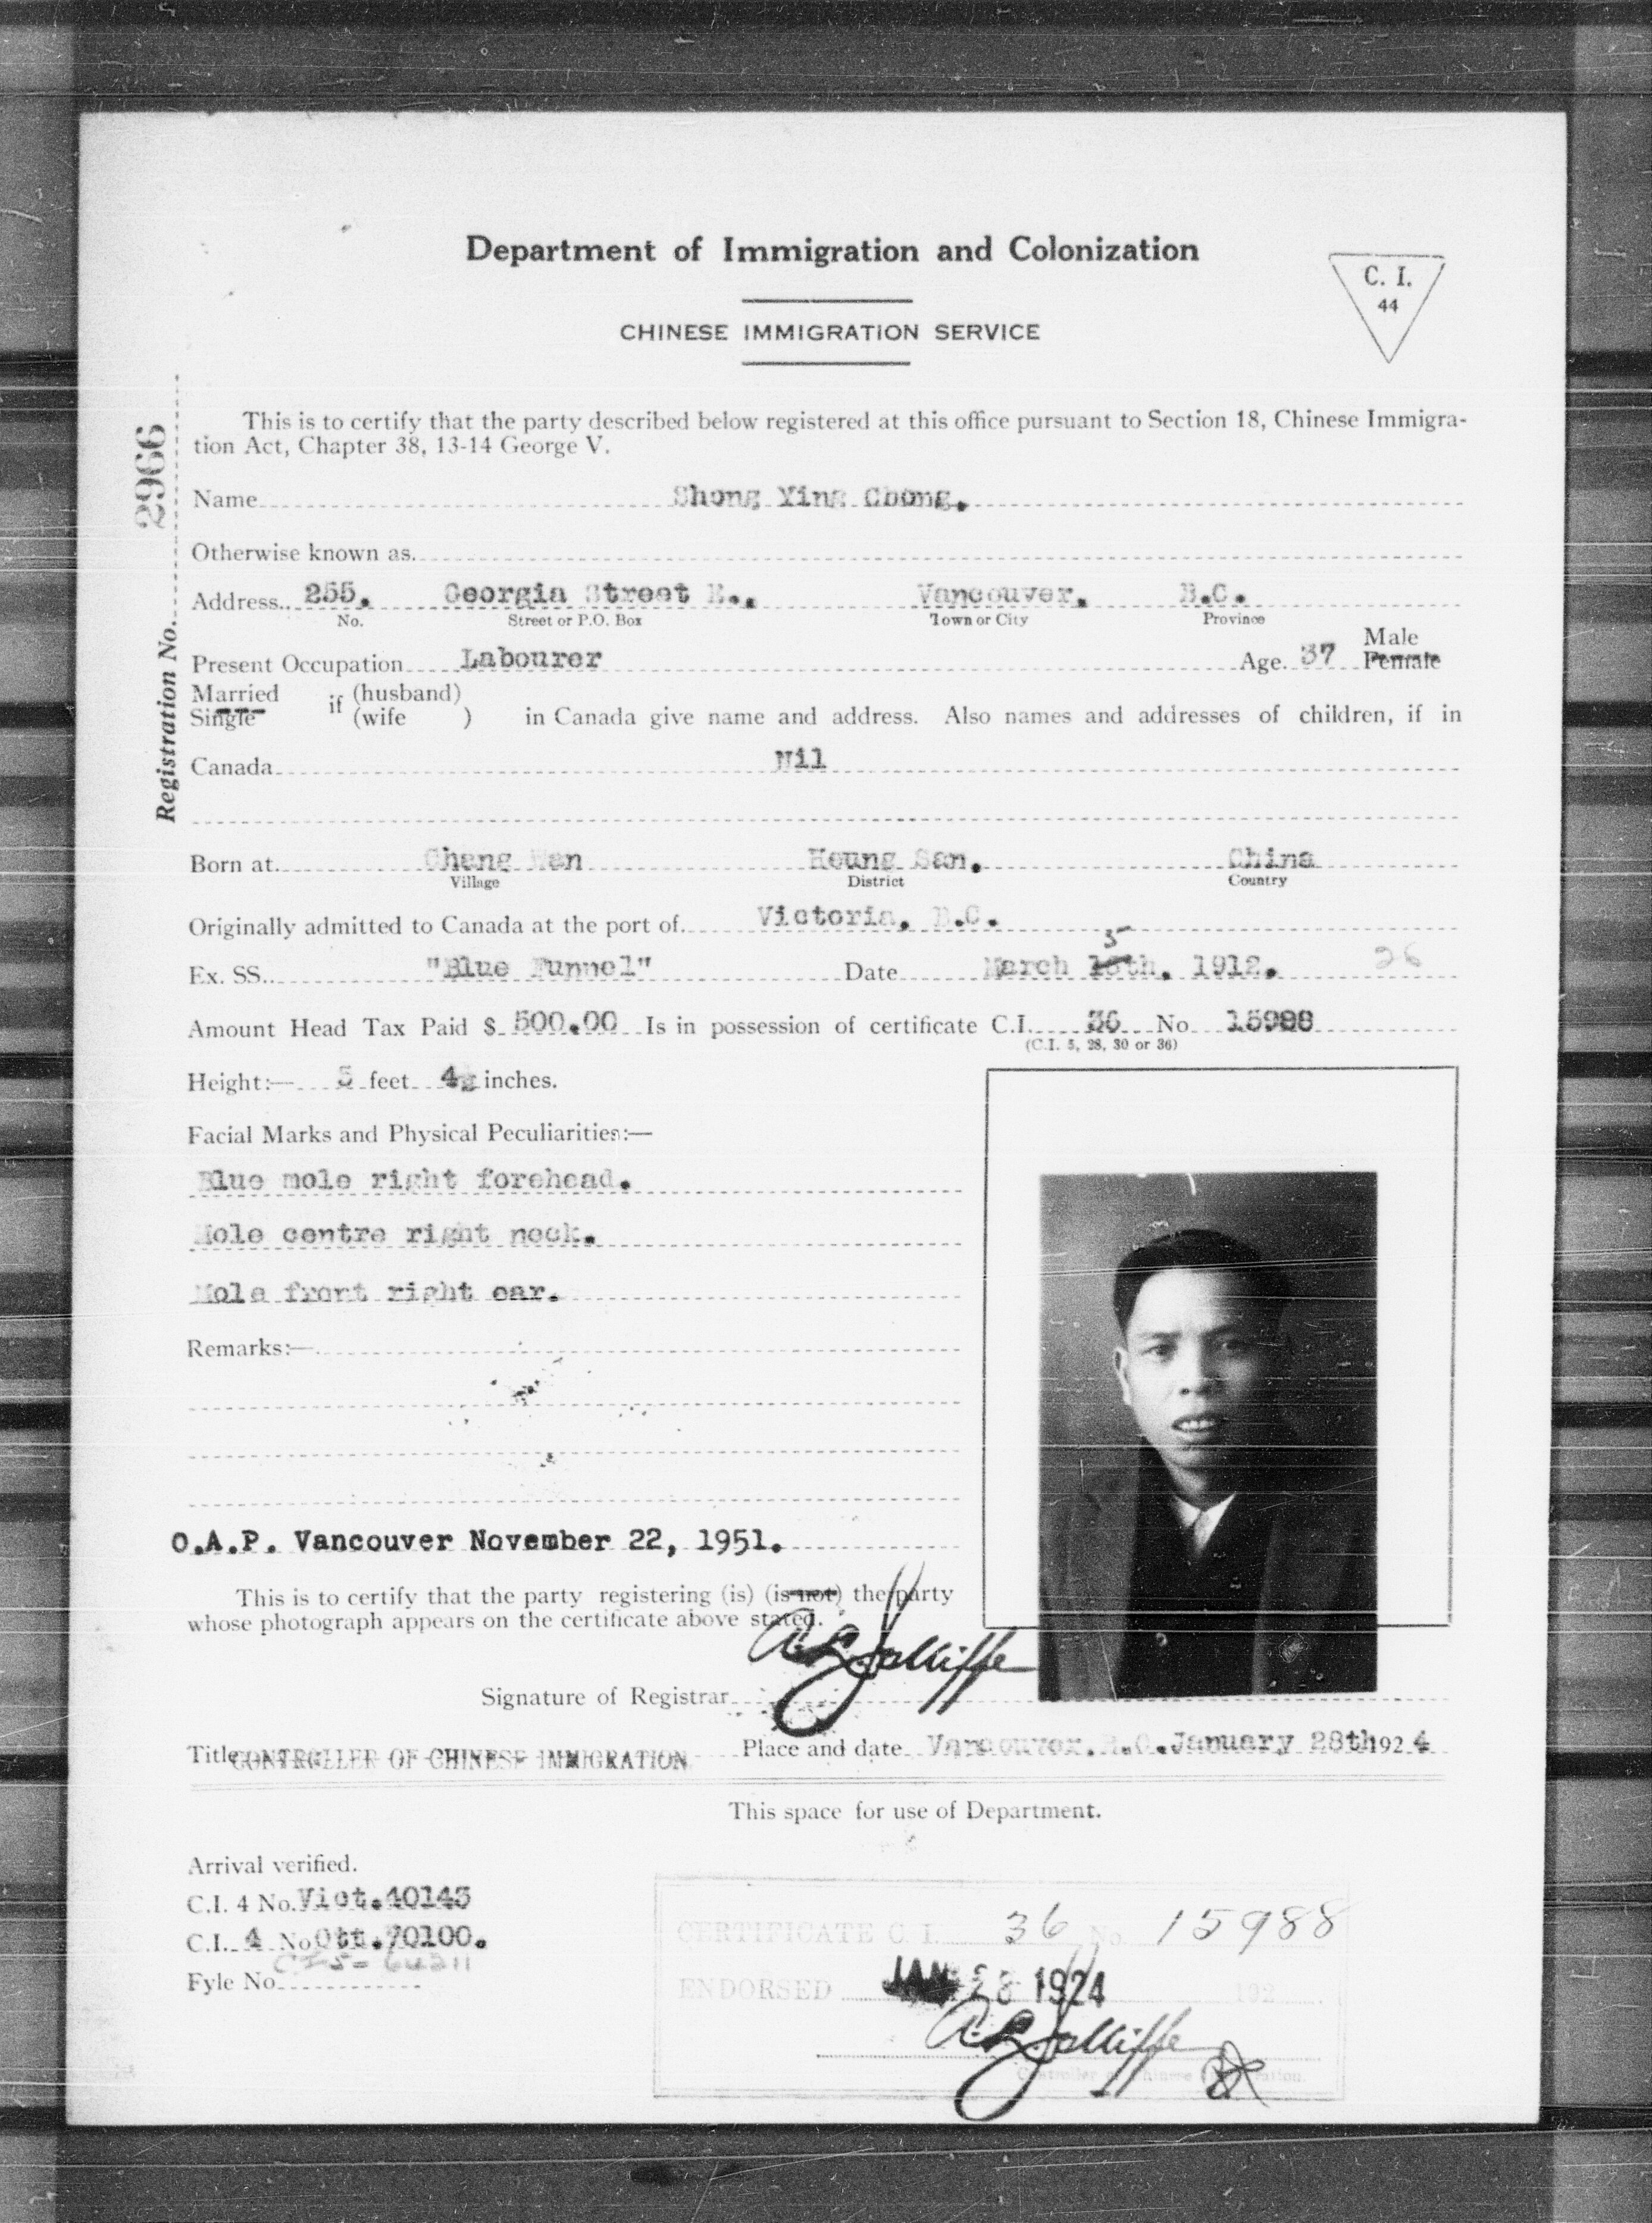 Department of Immigration and Colonization
C. I.
44
CHINESE IMMIGRATION SERVICE
This is to certify that the party described below registered at this office pursuant to Section 18, Chinese Immigra-
tion Act, Chapter 38, 13-14 George V.
Registration No. 2966
Name Shong Ying Chong.
Otherwise known as
Address 255. Georgia Street E., Vancouver. B.C.
No. Street or P.O. Box Town or City Province
Present Occupation Labourer Age 37 Male Female
Married
Single if (husband) (wife ) in Canada give name and address. Also names and addresses of children, if in
Canada Nil
Born at Chang Wan Heung San. China
Village District Country
Originally admitted to Canada at the port of Victoria, B.C.
5
Ex. SS. "Blue Funnel" Date March 15th. 1912. 26
Amount Head Tax Paid $ 500.00 Is in possession of certificate C.I. 36 No 15988
(C.I. 5, 28, 30 or 36)
Height:— 5 feet 4½ inches.
Facial Marks and Physical Peculiarities:—
Blue mole right forehead.
Mole centre right neck.
Mole front right ear.
Remarks:—
O.A.P. Vancouver November 22, 1951.
This is to certify that the party registering (is) (is not) the party
whose photograph appears on the certificate above stated.
Signature of Registrar A.L. Jolliffe
Title CONTROLLER OF CHINESE IMMIGRATION Place and date Vancouver. B.C. January 28th 1924
This space for use of Department.
Arrival verified.
C.I. 4 No. Vict. 40143
C.I. 4 No Ott. 70100.
Fyle No.
CERTIFICATE C. I. 36 No. 15988
ENDORSED JAN 28 1924 192
A.L. Jolliffe
Controller of Chinese Immigration.